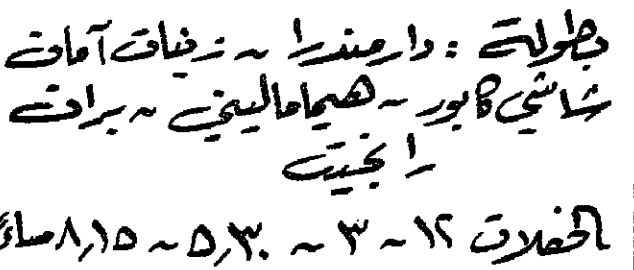 بطولة : دارمندرا ~ زينات آمان
شاشي كابور ~ هيماماليني ~ بران
رانجيت
الحفلات ١٢ ~ ٣ ~ ٥,٣٠ ~ ٨,١٥ مساءً